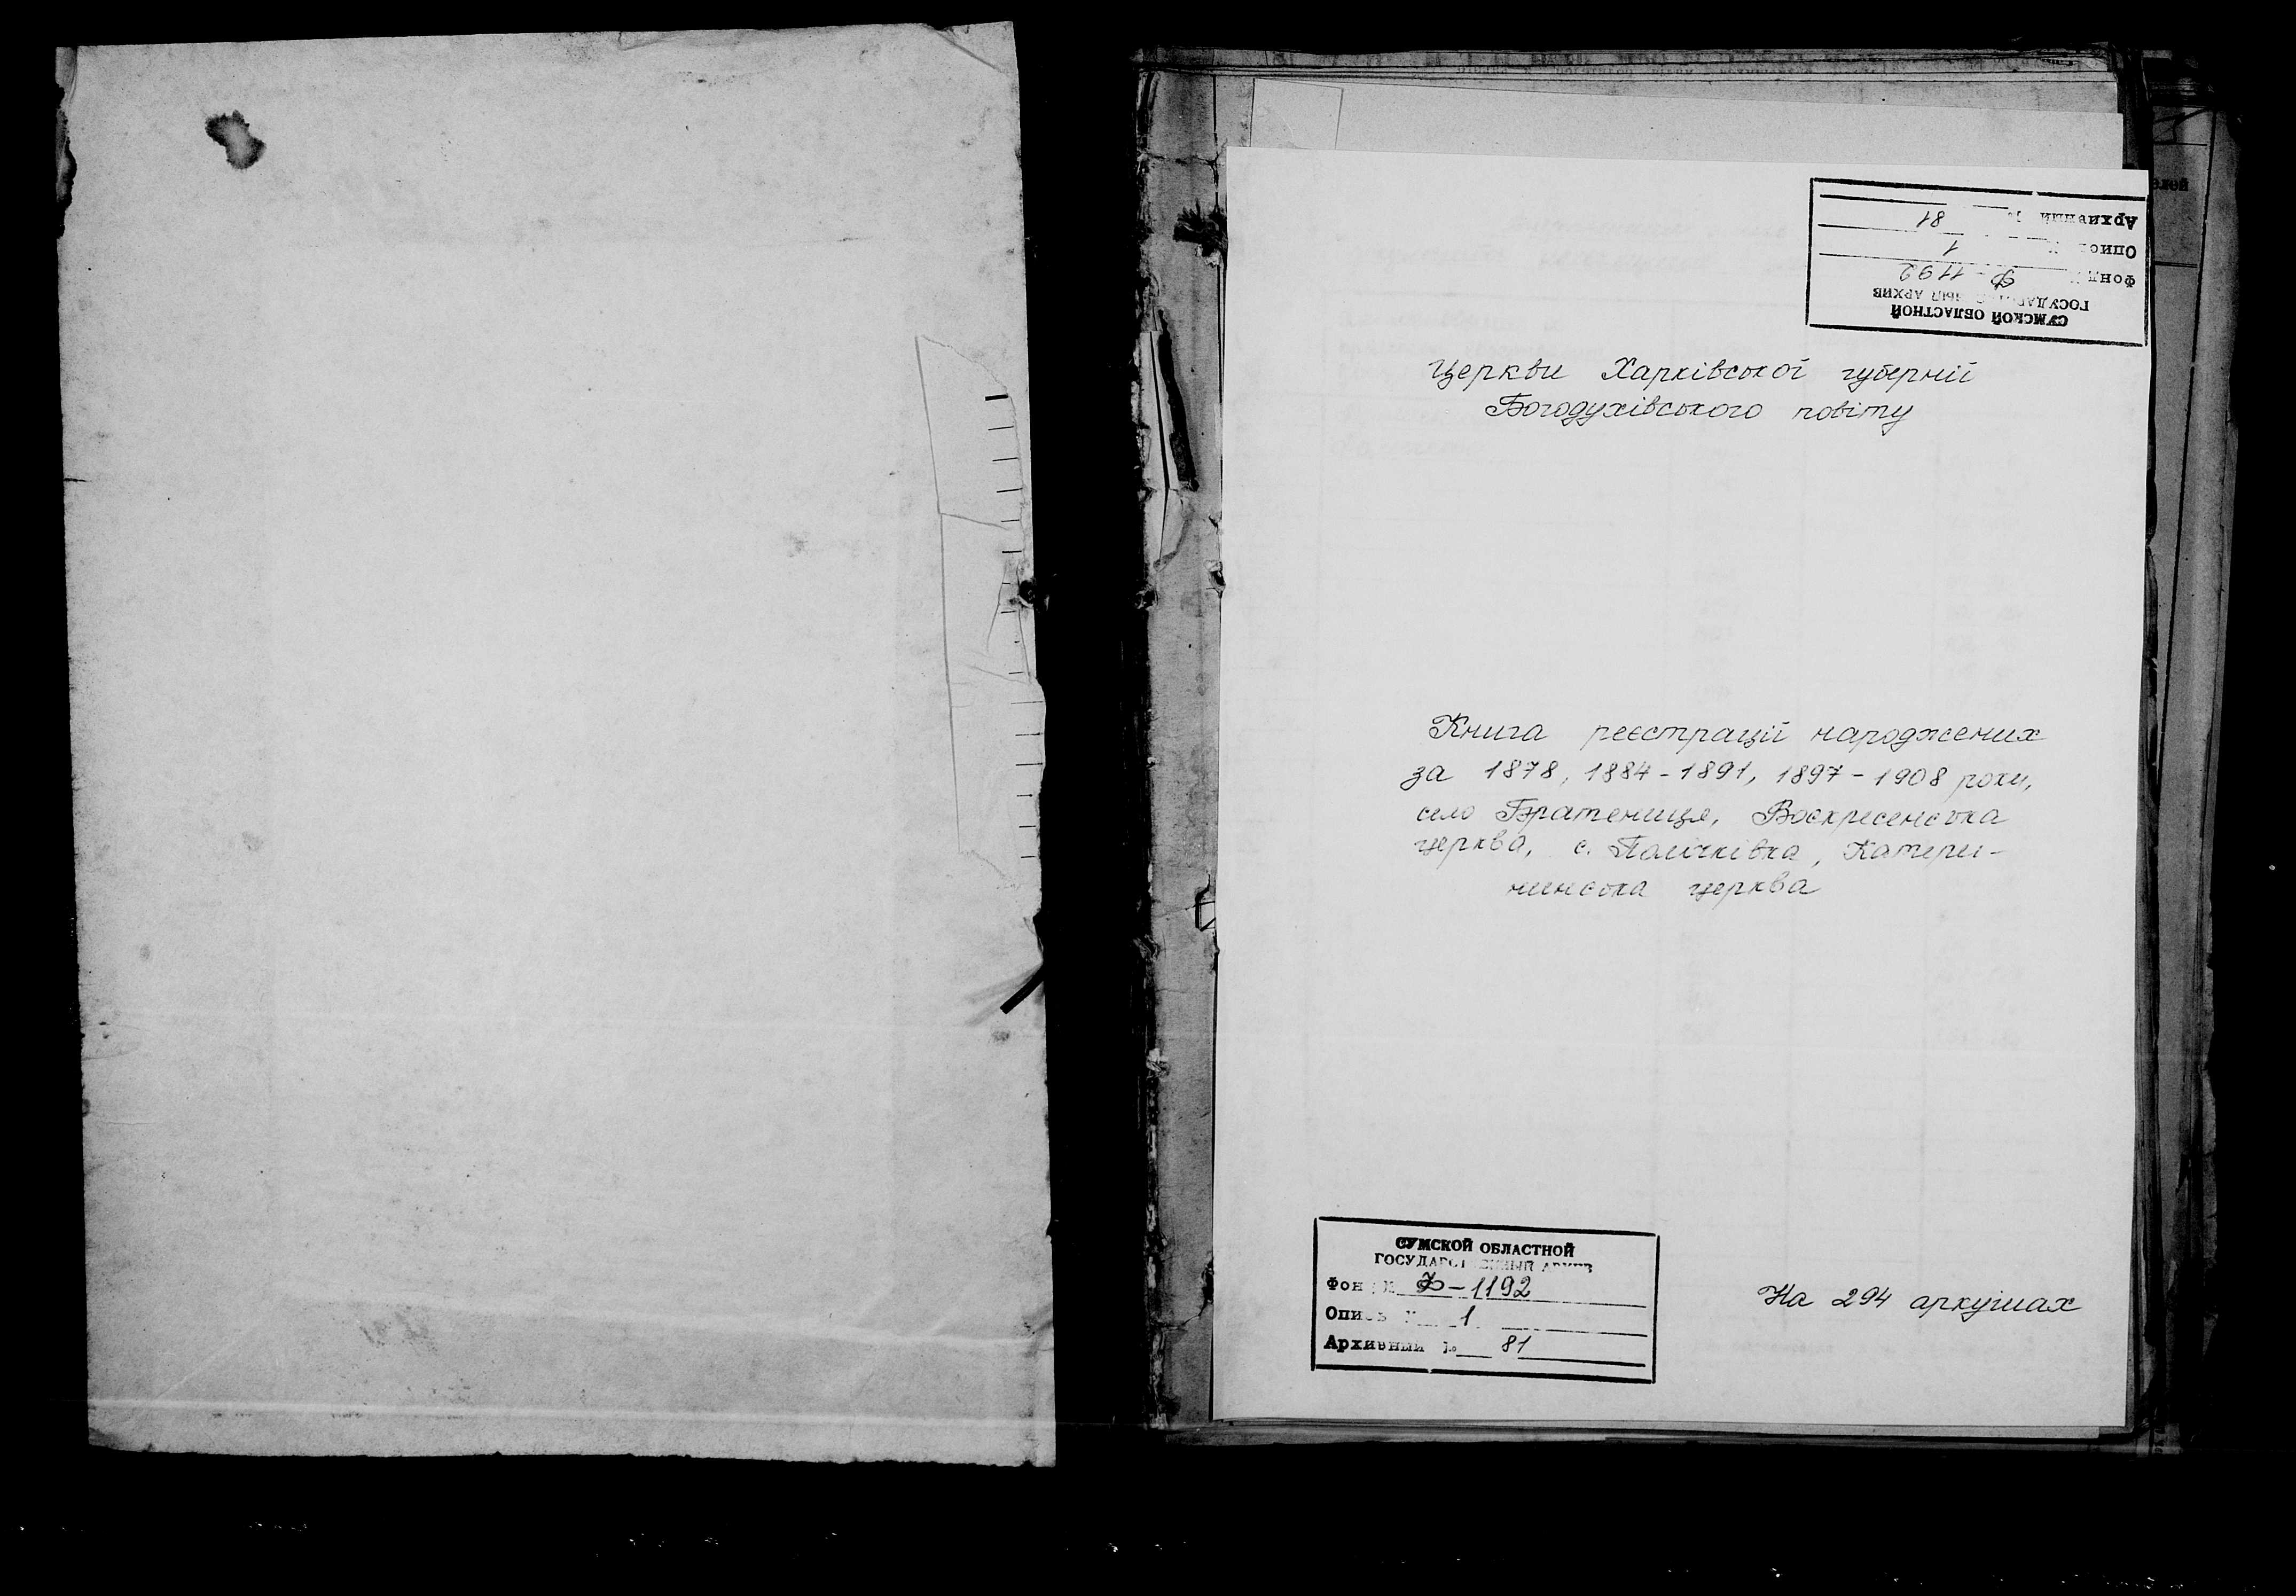 СУМСКОЙ ОБЛАСТНОЙ
ГОСУДАРСТВЕННЫЙ АРХИВ
Фонд № Ф-1192
Опись № 1
Архивный № 81
Церкви Харківської губернії
Богодухівського повіту
Книга реєстрації народжених
за 1878, 1884-1891, 1897-1908 роки,
село Братениця, Воскресенська
церква, с. Павлівка, Катери-
нинська церква
СУМСКОЙ ОБЛАСТНОЙ
ГОСУДАРСТВЕННЫЙ АРХИВ
Фонд № Ф-1192
Опись № 1
Архивный № 81
На 294 аркушах